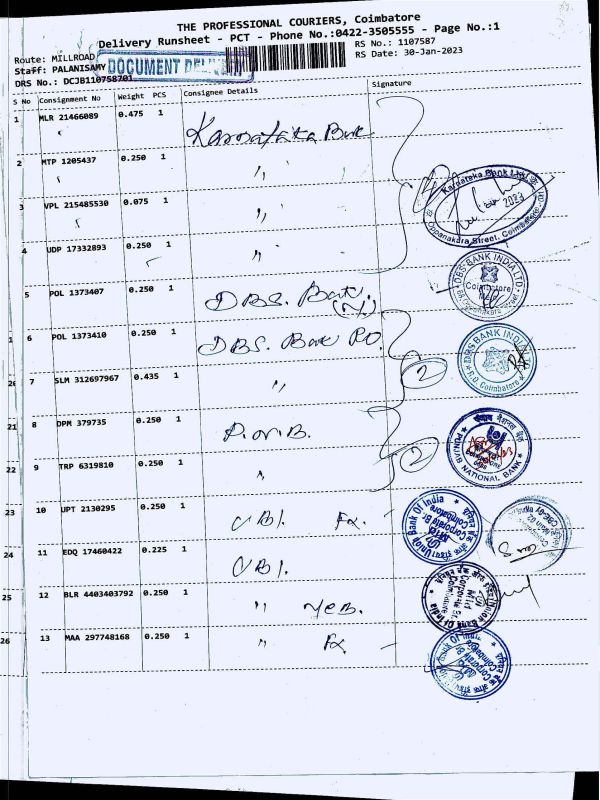 THE PROFESSIONAL COURIERS, Coimbatore
Delivery Runsheet - PCT - Phone No.:0422-3505555 - Page No.:1
Route: MILLROAD RS No.: 1107587
Staff: PALANISAMY DOCUMENT DELIVERY RS Date: 30-Jan-2023
DRS No.: DCJB110758701
S No Consignment No Weight PCS Consignee Details Signature
1 MLR 21466089 0.475 1 Karnataka Bank
2 MTP 1205437 0.250 1 "
3 VPL 215485530 0.075 1 "
Karnataka Bank Ltd.
2023
Oppanakara Street, Coimbatore
4 UDP 17332893 0.250 1 "
5 POL 1373407 0.250 1 DBS. Bank.
DBS BANK INDIA LTD
Coimbatore
1 6 POL 1373410 0.250 1 DBS. Bank RO.
DBS BANK INDIA
R.O. Coimbatore
2
7 SLM 312697967 0.435 1 "
21 8 DPM 379735 0.250 1 P.N.B.
PUNJAB NATIONAL BANK
22 9 TRP 6319810 0.250 1 "
2
23 10 UPT 2130295 0.250 1 UBI. Fx.
Union Bank Of India
Mid Corporate Br
Coimbatore
24 11 EDQ 17460422 0.225 1 UBI.
25 12 BLR 4403403792 0.250 1 " MCB.
Union Bank Of India
Mid Corporate
26 13 MAA 297748168 0.250 1 " Fx
Union Bank Of India
Mid Corporate Br
Coimbatore